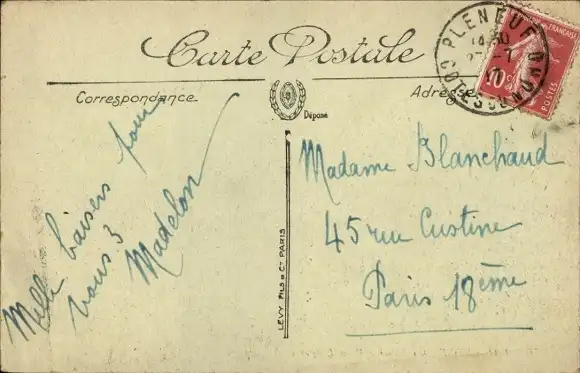 Carte Postale
PLENEUF
CÔTES DU NORD
10c
POSTES
Correspondance
Adresse
Déposé
Mille baisers pour
vous 3
Madelon
LEVY FILS & Cie PARIS
Madame Blanchaud
45 rue Custine
Paris 18ème